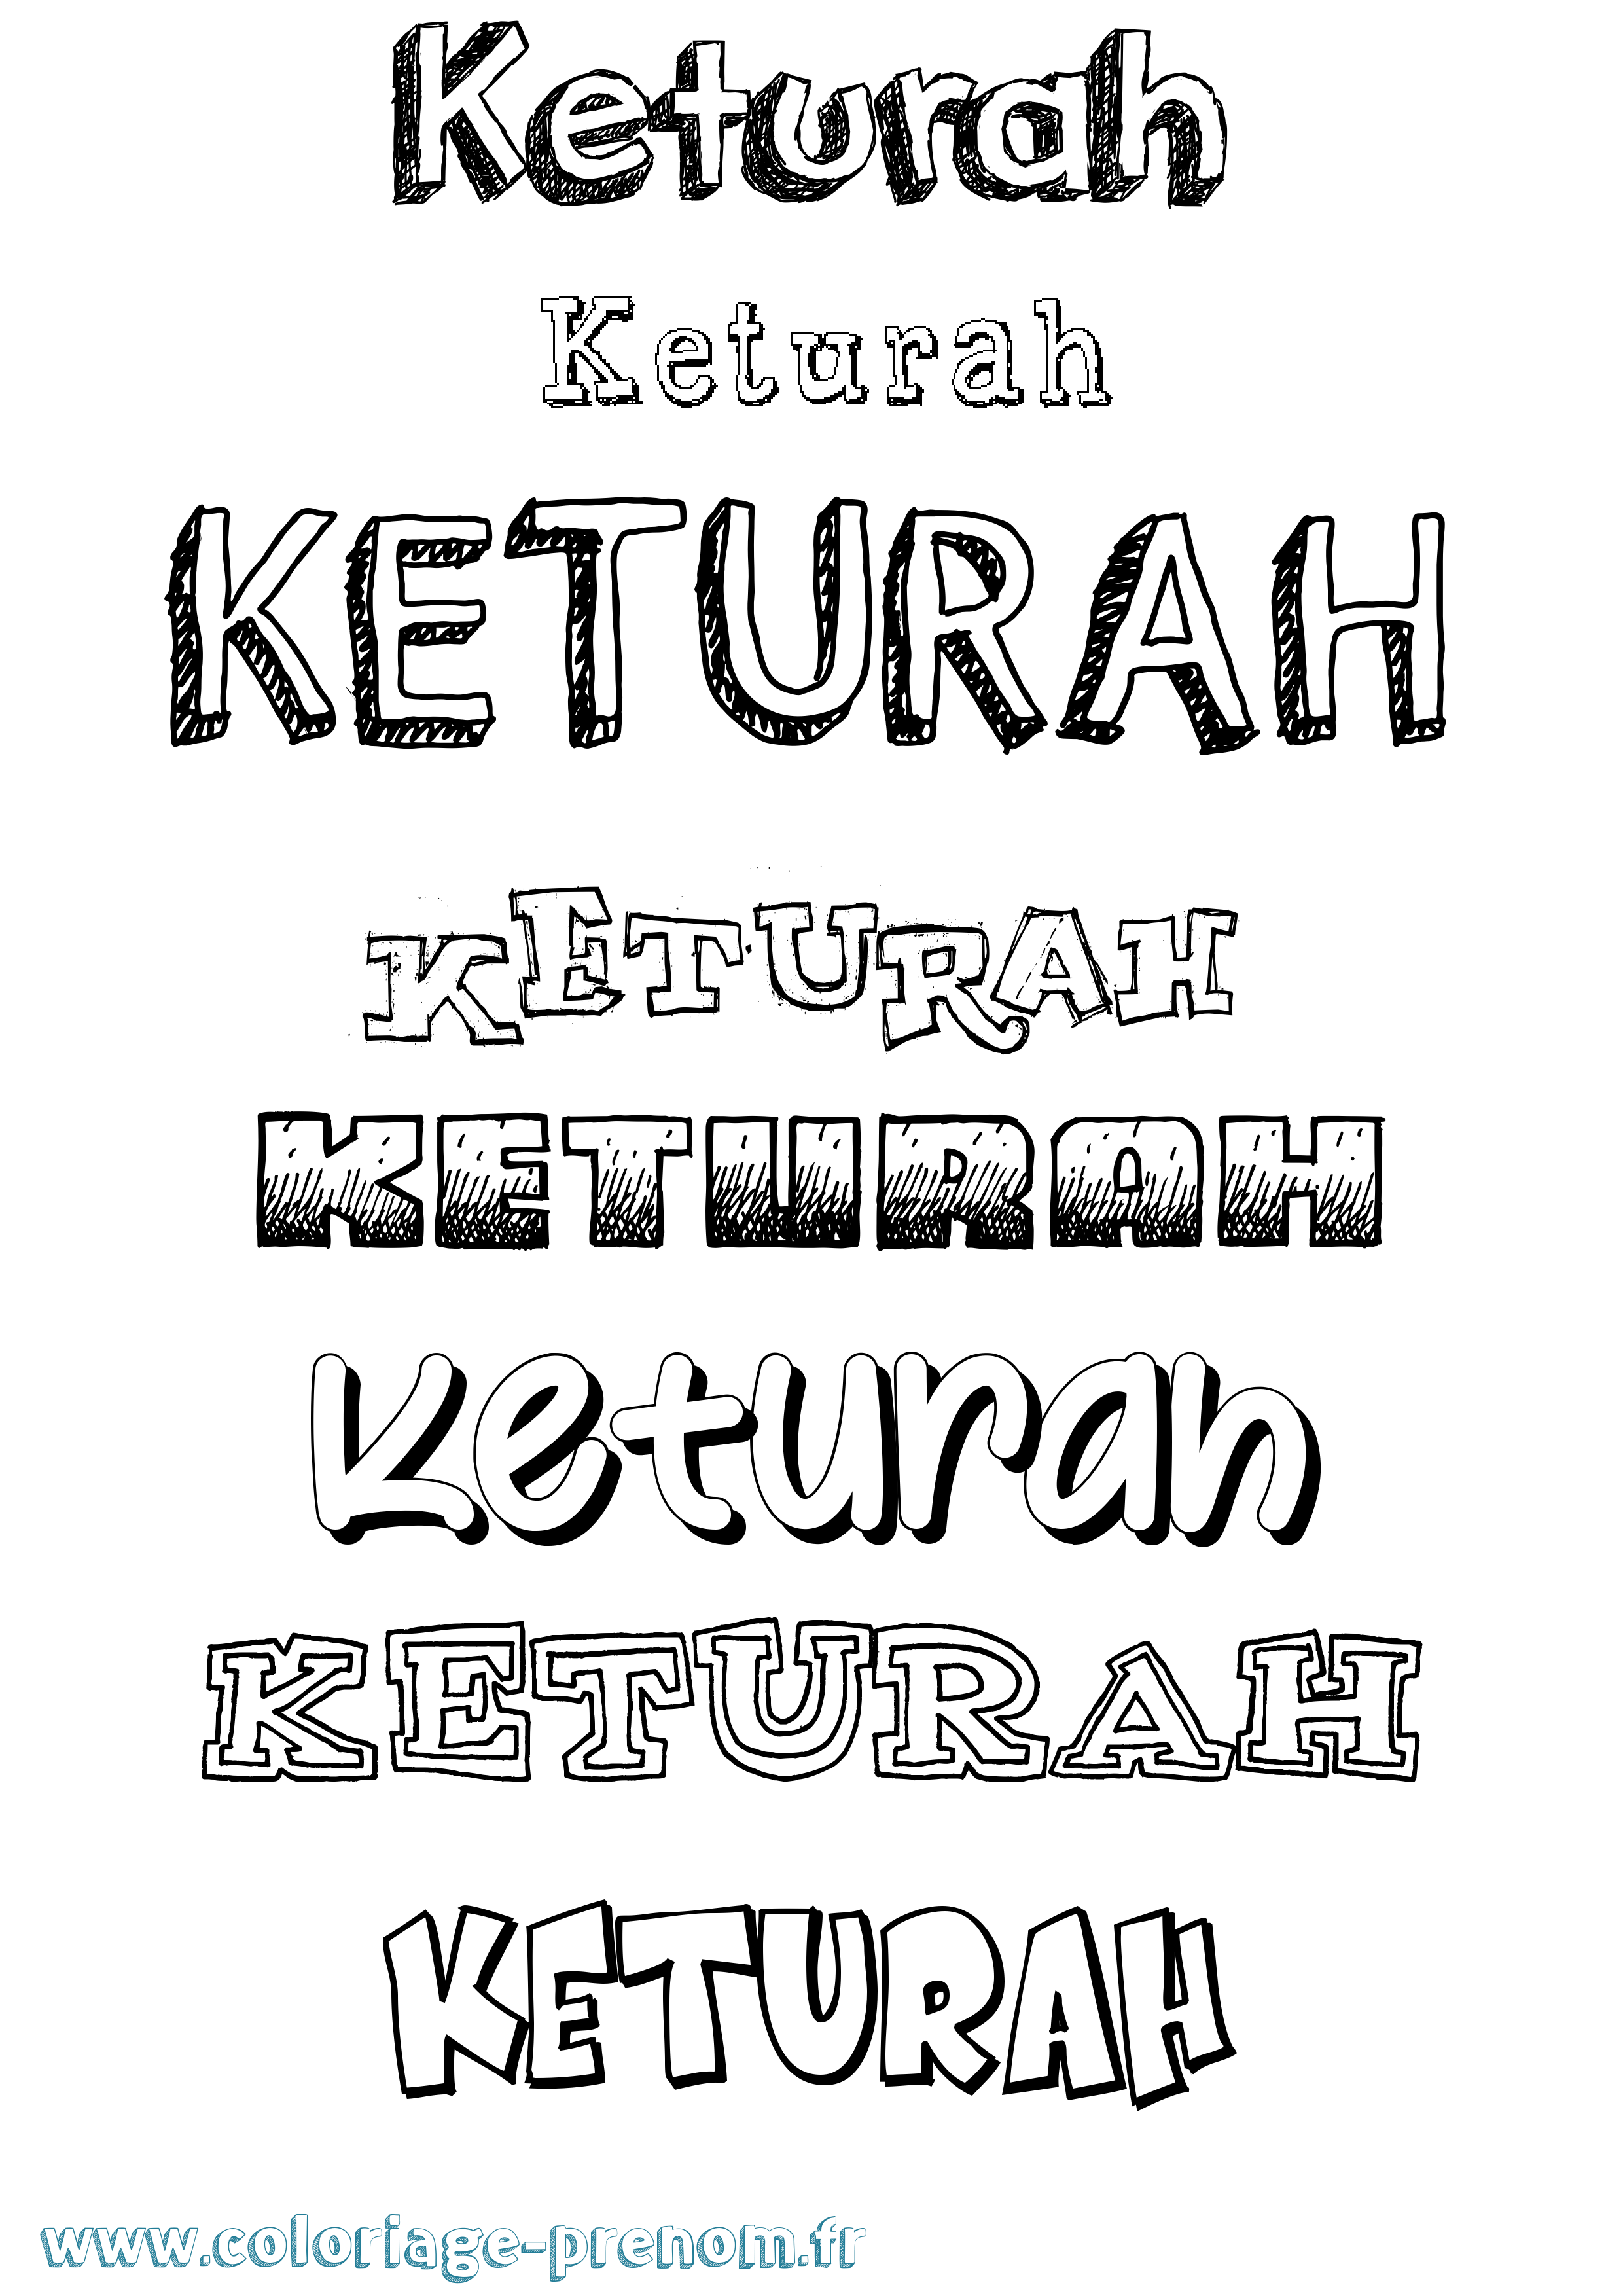 Keturah
Keturah
KETURAH
KETURAH
KETURAH
Keturah
KETURAH
KETURAH
www.coloriage-prenom.fr